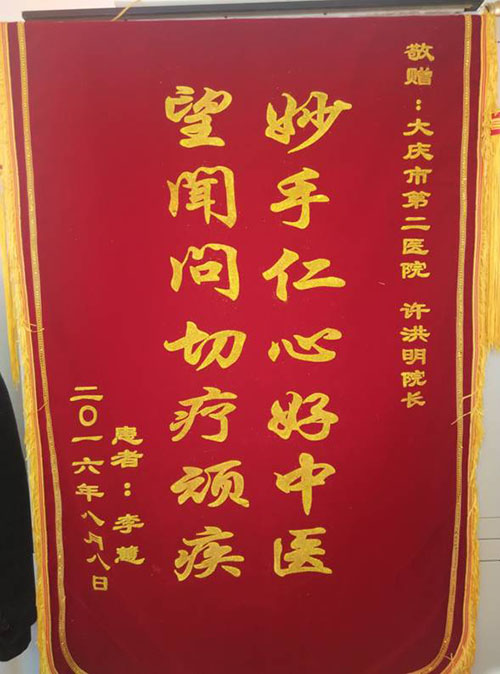 敬赠：大庆市第二医院 许洪明院长
妙手仁心好中医
望闻问切疗顽疾
患者：李慧
二〇一六年八月八日